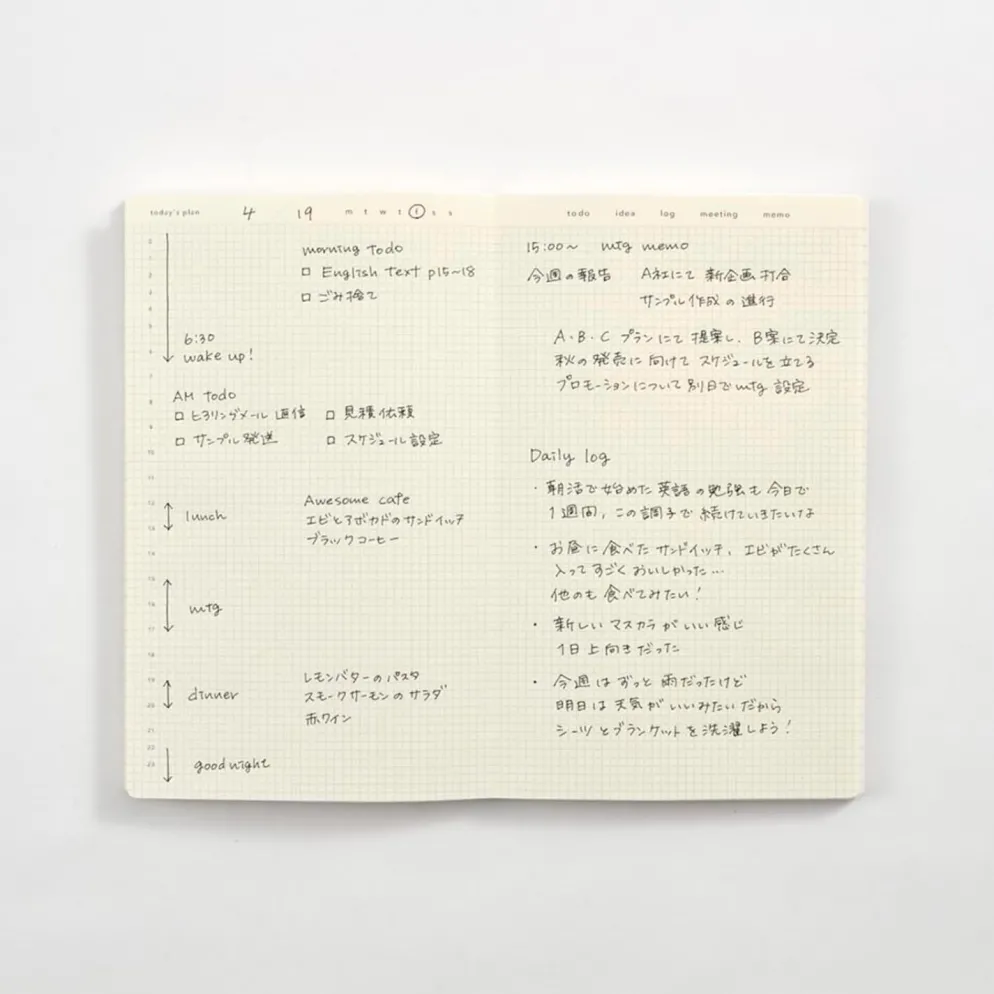 today's plan 4 19 m t w t f s s
morning todo
□ English text p15~18
□ ごみ捨て
6:30
wake up!
AM todo
□ ヒアリングメール 返信 □ 見積依頼
□ サンプル発送 □ スケジュール設定
lunch
Awesome cafe
エビとアボカドのサンドイッチ
ブラックコーヒー
mtg
dinner
レモンバターのパスタ
スモークサーモンのサラダ
赤ワイン
good night
todo idea log meeting memo
15:00~ mtg memo
今週の報告 A社にて 新企画打合
サンプル作成の進行
A・B・C プランにて提案し、B案にて決定
秋の発売に向けてスケジュールを立てる
プロモーションについて別日でmtg設定
Daily log
・朝活で始めた英語の勉強も今日で
1週間, この調子で続けていきたいな
・お昼に食べたサンドイッチ、エビがたくさん
入っててすごくおいしかった…
他のも食べてみたい!
・新しいマスカラがいい感じ
1日上向きだった
・今週はずっと雨だったけど
明日は天気がいいみたいだから
シーツとブランケットを洗濯しよう!